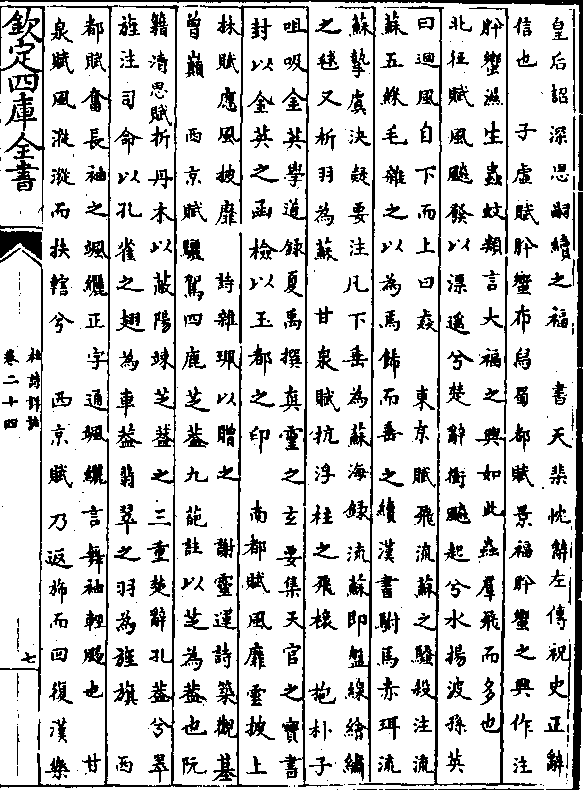 皇后詔深思嗣續之福　書天棐忱辭左傳祝史正辭
信也　子虛賦肸蠁布舄蜀都賦景福肸蠁之興作注
肸蠁濕生蟲蚊類言大福之興如此蟲羣飛而多也
北征賦風飈發以漂遥兮楚辭衝飈起兮水揚波孫英
曰迴風自下而上曰猋　東京賦飛流蘇之騷殺注流
蘇五綵毛雜之以為馬飾而垂之續漢書駙馬赤珥流
蘇摯虞決疑要注凡下垂為蘇海錄流蘇即盤線繪繡
之毬又析羽為蘇　甘泉賦抗浮柱之飛榱　抱朴子
咀吸金英學道錄夏禹撰真靈之玄要集天官之寶書
封以金英之函檢以玉都之印　南都賦風靡雲披上
林賦應風披靡　詩雜珮以贈之　謝靈運詩築觀基
曾巔　西京賦驪駕四鹿芝葢九葩註以芝為葢也阮
籍清思賦折丹木以蔽陽竦芝葢之三重楚辭孔葢兮翠
旌注司命以孔雀之翅為車葢翡翠之羽為旌旗　西
都賦奮長袖之颯纚正字通颯纚言舞袖輕颺也　甘
泉賦風漎漎而扶轄兮　西京賦乃返旆而回復漢樂
欽定四庫全書
杜詩詳註
卷二十四
七